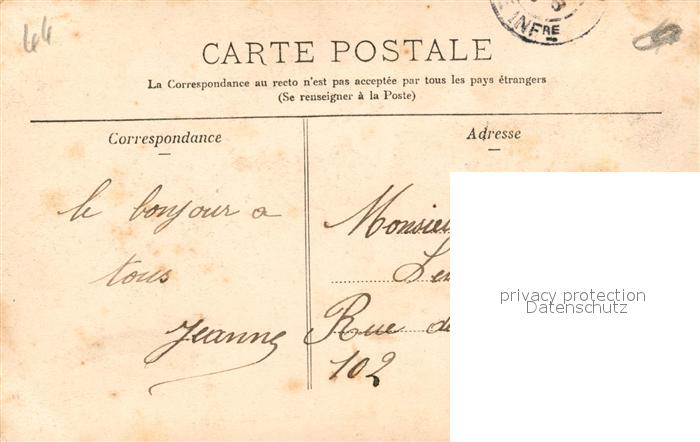 44
INFRE
CARTE POSTALE
La Correspondance au recto n'est pas acceptée par tous les pays étrangers
(Se renseigner à la Poste)
Correspondance
Adresse
le bonjour a
tous
Jeanne
Monsieu
Rue de
102
privacy protection
Datenschutz